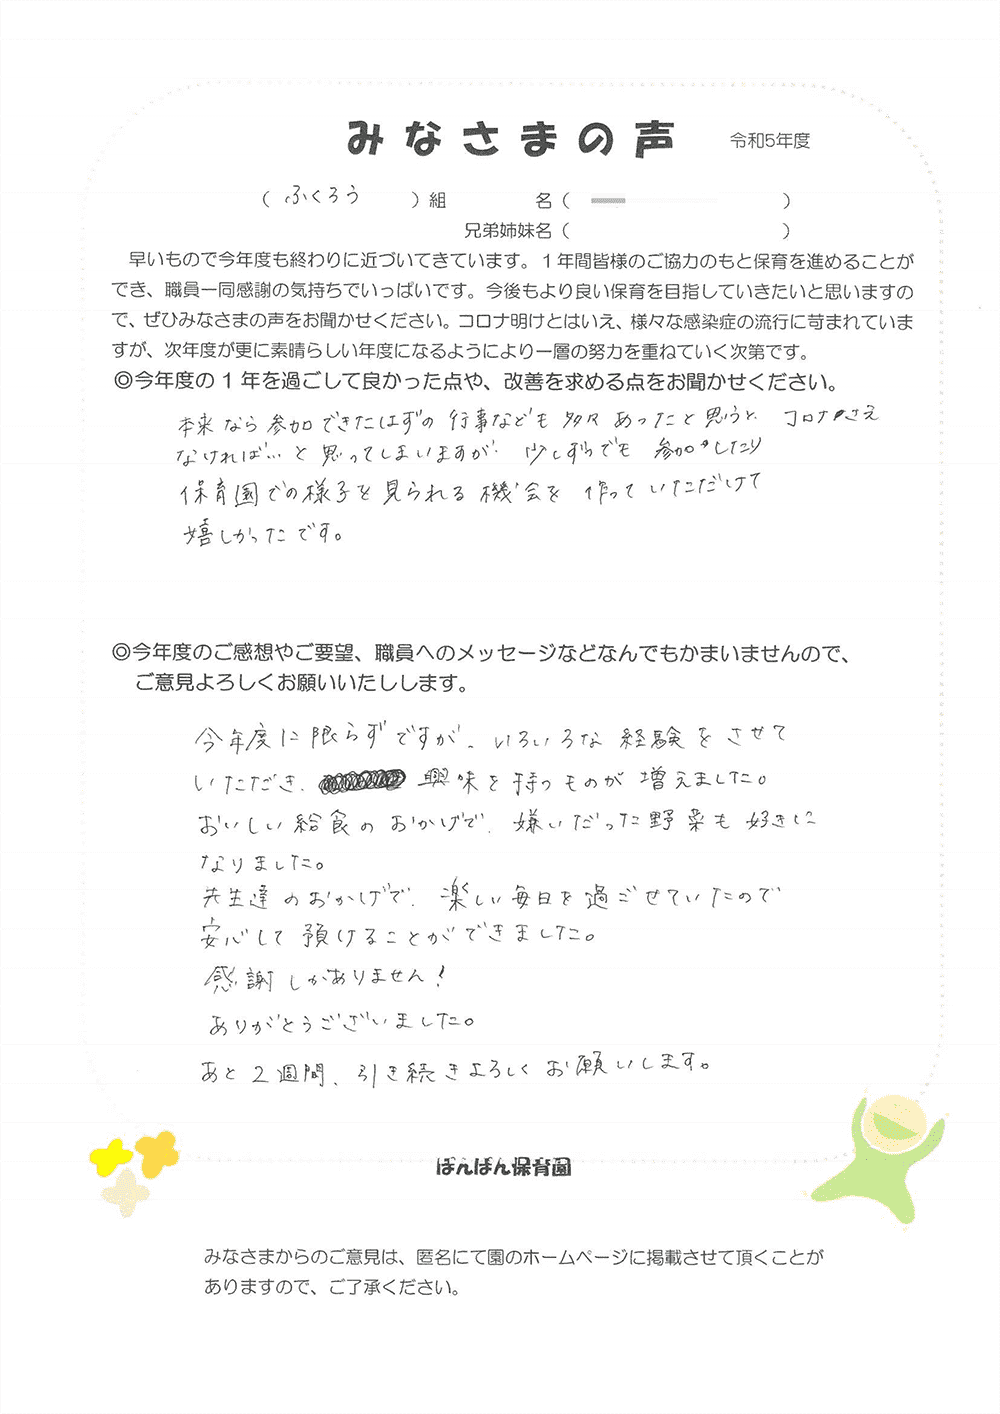 みなさまの声 令和5年度
( ふくろう )組 名( )
兄弟姉妹名( )
早いもので今年度も終わりに近づいてきています。１年間皆様のご協力のもと保育を進めることが
でき、職員一同感謝の気持ちでいっぱいです。今後もより良い保育を目指していきたいと思いますの
で、ぜひみなさまの声をお聞かせください。コロナ明けとはいえ、様々な感染症の流行に苛まれていま
すが、次年度が更に素晴らしい年度になるようにより一層の努力を重ねていく次第です。
◎今年度の１年を過ごして良かった点や、改善を求める点をお聞かせください。
本来なら参加できたはずの行事なども多々あったと思うと コロナさえ
なければ…と思ってしまいますが 少しずつでも 参加したり
保育園での様子を見られる機会を作っていただけて
嬉しかったです。
◎今年度のご感想やご要望、職員へのメッセージなどなんでもかまいませんので、
ご意見よろしくお願いいたしします。
今年度に限らずですが、いろいろな経験をさせて
いただき、興味を持つものが増えました。
おいしい給食のおかげで、嫌いだった野菜も好きに
なりました。
先生達のおかげで、楽しい毎日を過ごせていたので
安心して預けることができました。
感謝しかありません!
ありがとうございました。
あと2週間、引き続きよろしくお願いします。
ぽんぽん保育園
みなさまからのご意見は、匿名にて園のホームページに掲載させて頂くことが
ありますので、ご了承ください。